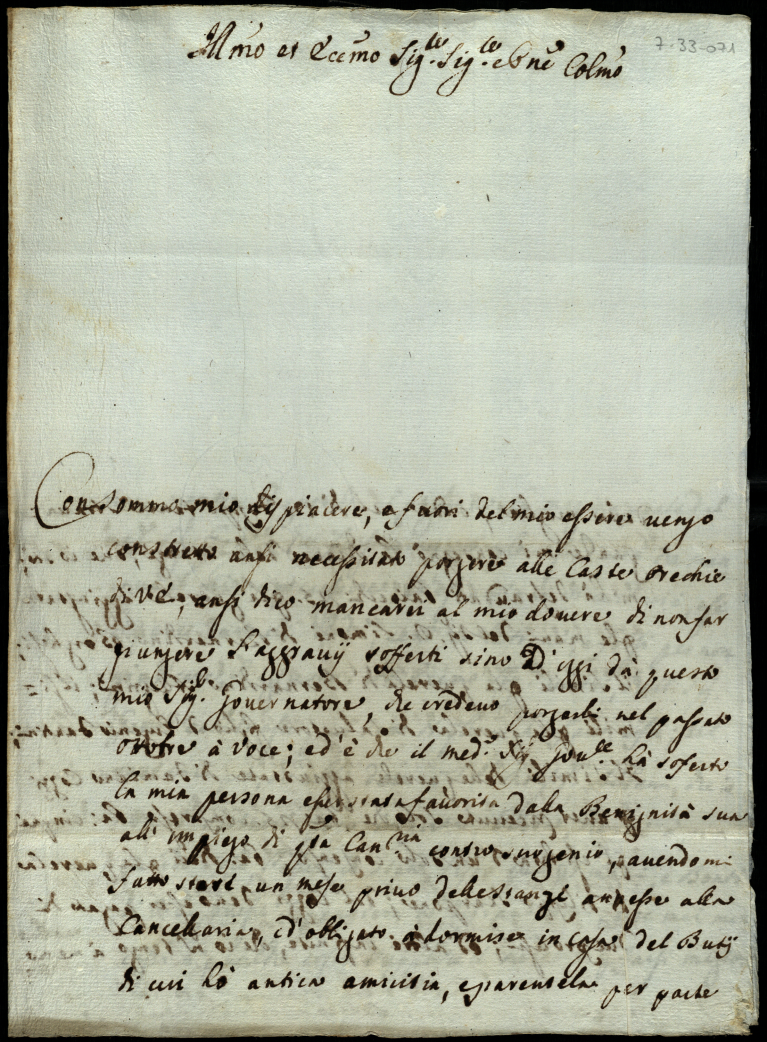 7-33-071
Ill.mo et Ecc.mo Sig.re Sig.re e Pne Colmo
Con sommo mio dispiacere, e fuori del mio essere vengo
constretto ansi necessitato porgere alle Caste orechie
di V.E., ansi dico mancarei al mio dovere di non far
giungere l'aggravij sofferti sino D'oggi da questo
mio Sig.re Governatore, che credevo porgerli nel passato
ottobre à voce; ed'è che il med.o Sig.r Gov.re hà soferto
la mia persona esser stata favorita dalla Benignità sua
all'impiego di q.ta Canc.ria contro suo genio, avendomi
fatto stare un mese privo delle stanze annesse alla
Cancellaria, ed'obligato à dormire in casa del Butij
di cui hò antica amicisia, e parentela per parte